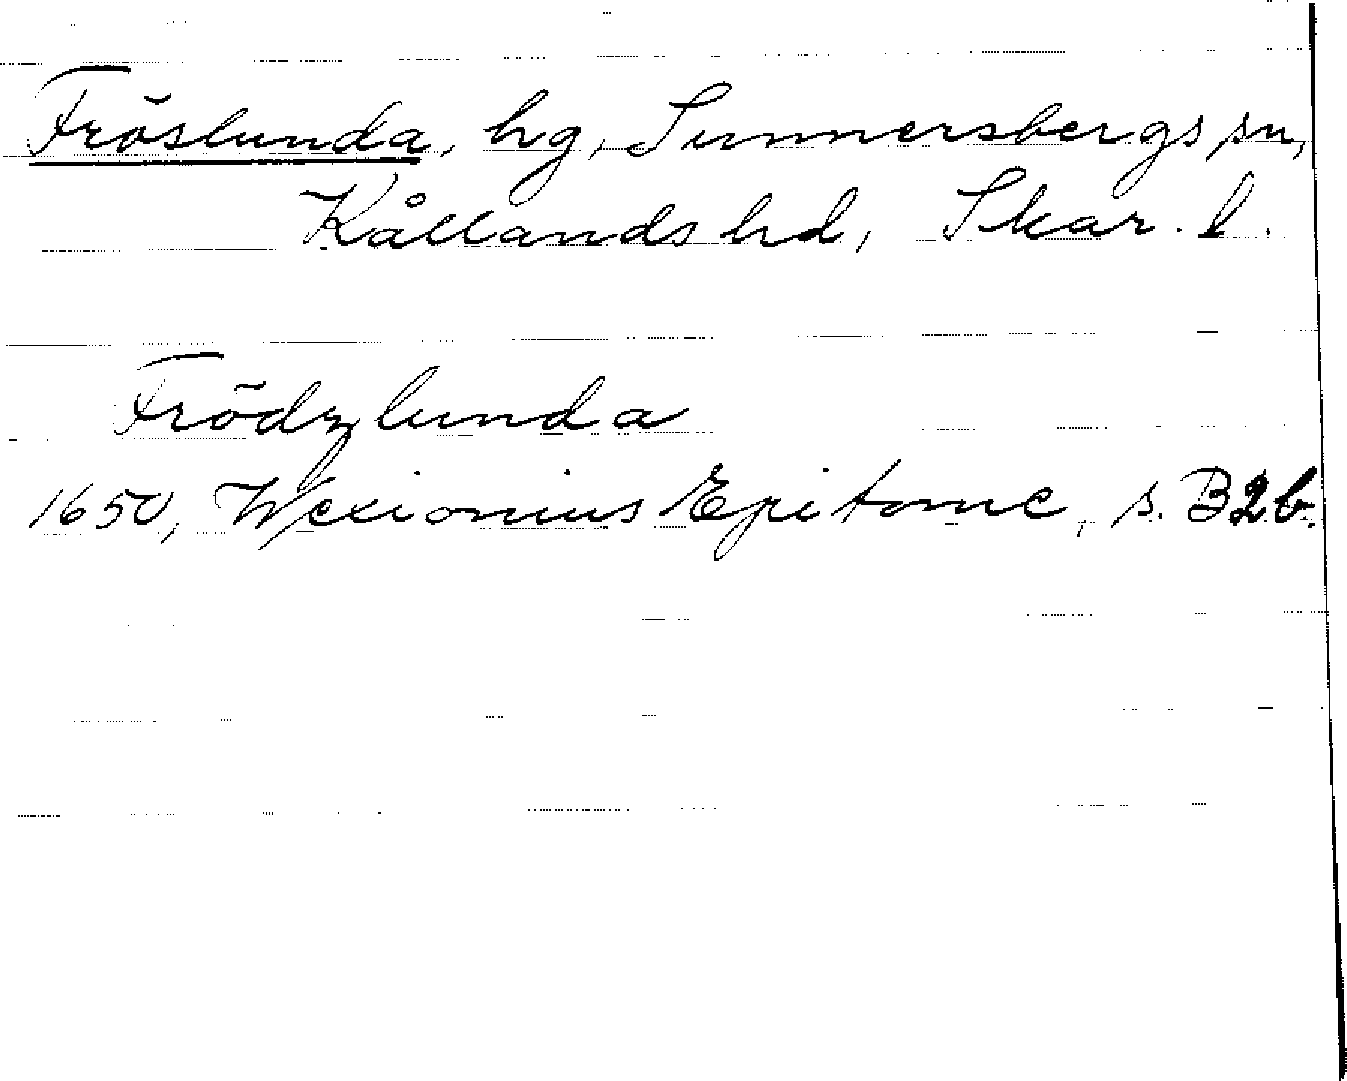 Fröslunda, hg, Sunnersbergs sn,
Kållands hd, Skar. l.
Frödzlunda
1650, Wexionius Epitome, s. B2b.